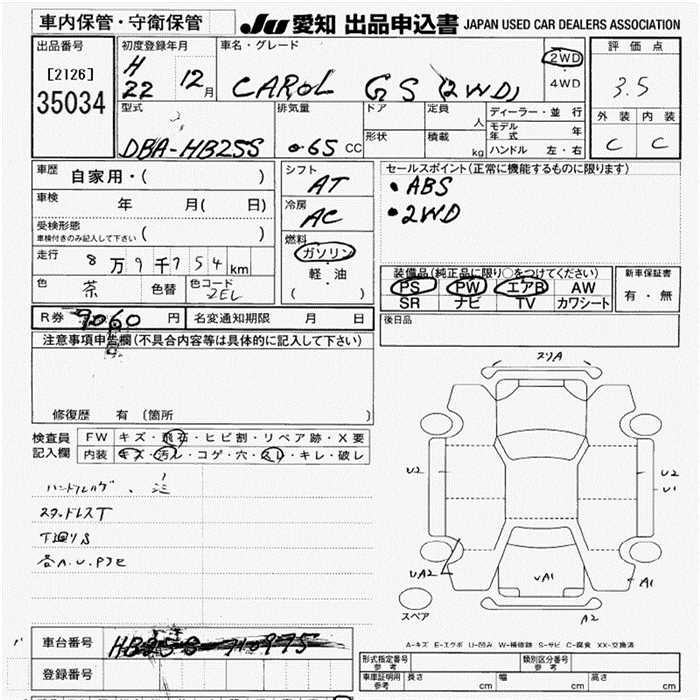 車内保管・守衛保管 JU 愛知 出品申込書 JAPAN USED CAR DEALERS ASSOCIATION
出品番号
[2126]
35034
初度登録年月
H 22 年 12 月
車名・グレード
CAROL GS (2WD)
2WD
・
4WD
評価点
3.5
外装 内装
C C
型式
DBA-HB25S
排気量
0.65 CC
ドア
形状
定員 人
積載 kg
ディーラー・並行
モデル年式 年
ハンドル 左・右
車歴 自家用・( )
車検 年 月( 日)
受検形態
車検付きのみ記入して下さい ( )
走行 8万9千754km
色 茶 色替 色コード ZEL
シフト
AT
冷房
AC
燃料
ガソリン
・
軽・油
( )
セールスポイント(正常に機能するものに限ります)
・ABS
・2WD
装備品(純正品に限り○をつけてください)
PS PW エアB AW
SR ナビ TV カワシート
新車保証書
有・無
R券 9060 円 名変通知期限 月 日
後日品
注意事項申告欄(不具合内容等は具体的に記入して下さい)
修復歴 有 〔箇所 〕
検査員
記入欄
FW キズ・飛石・ヒビ割・リペア跡・X要
内装 キズ・汚れ・コゲ・穴・スレ・キレ・破レ
スタッドレスT
下廻りS
各A.U.P7E
スリA
U2
U2
U1
UA2
UA1
A1
A2
スペア
A-キズ E-エクボ U-凹み W-補修跡 S-サビ C-腐食 XX-交換済
車台番号 HB25S 710975
登録番号
形式指定番号
参考
類別区分番号
参考
車庫証明用
参考
長さ cm 幅 cm 高さ cm